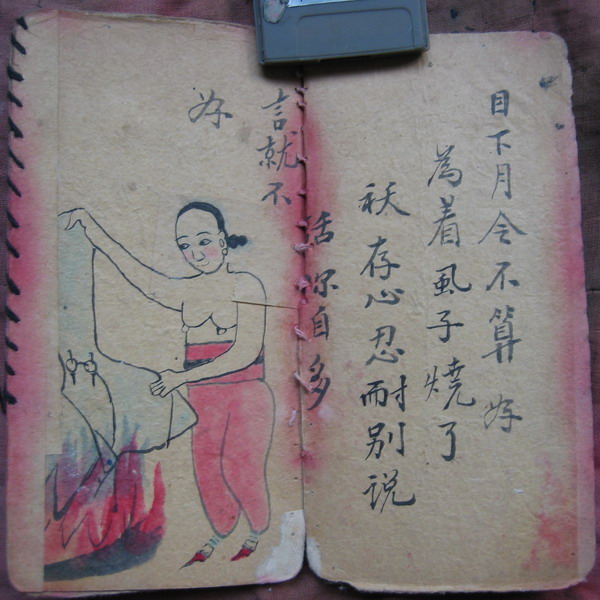 目下月令不算好
為着虱子燒了
袄存心忍耐别说
话你自多
言就不
好